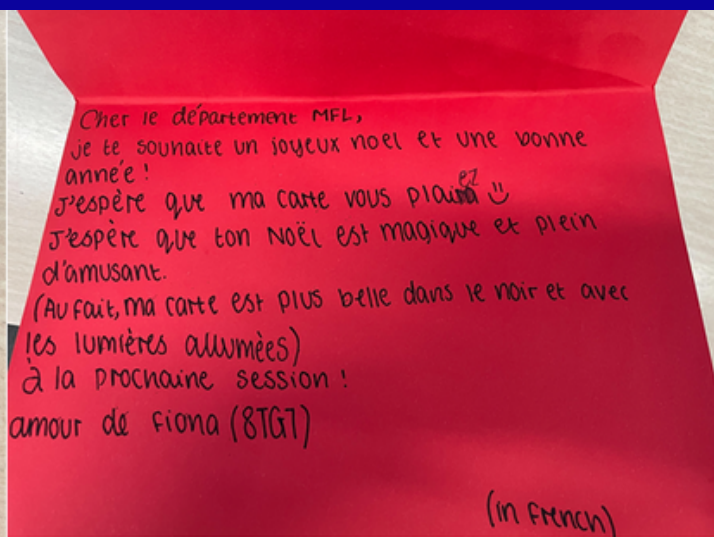 Cher le département MFL,
je te souhaite un joyeux noel et une bonne
année!
J'espère que ma carte vous
J'espère que ton Noël est magique et plein
d'amusant.
(Au fait, ma carte est plus belle dans le noir et avec
les lumières allumées)
à la prochaine session!
amour de fiona (8TG7)
(in french)